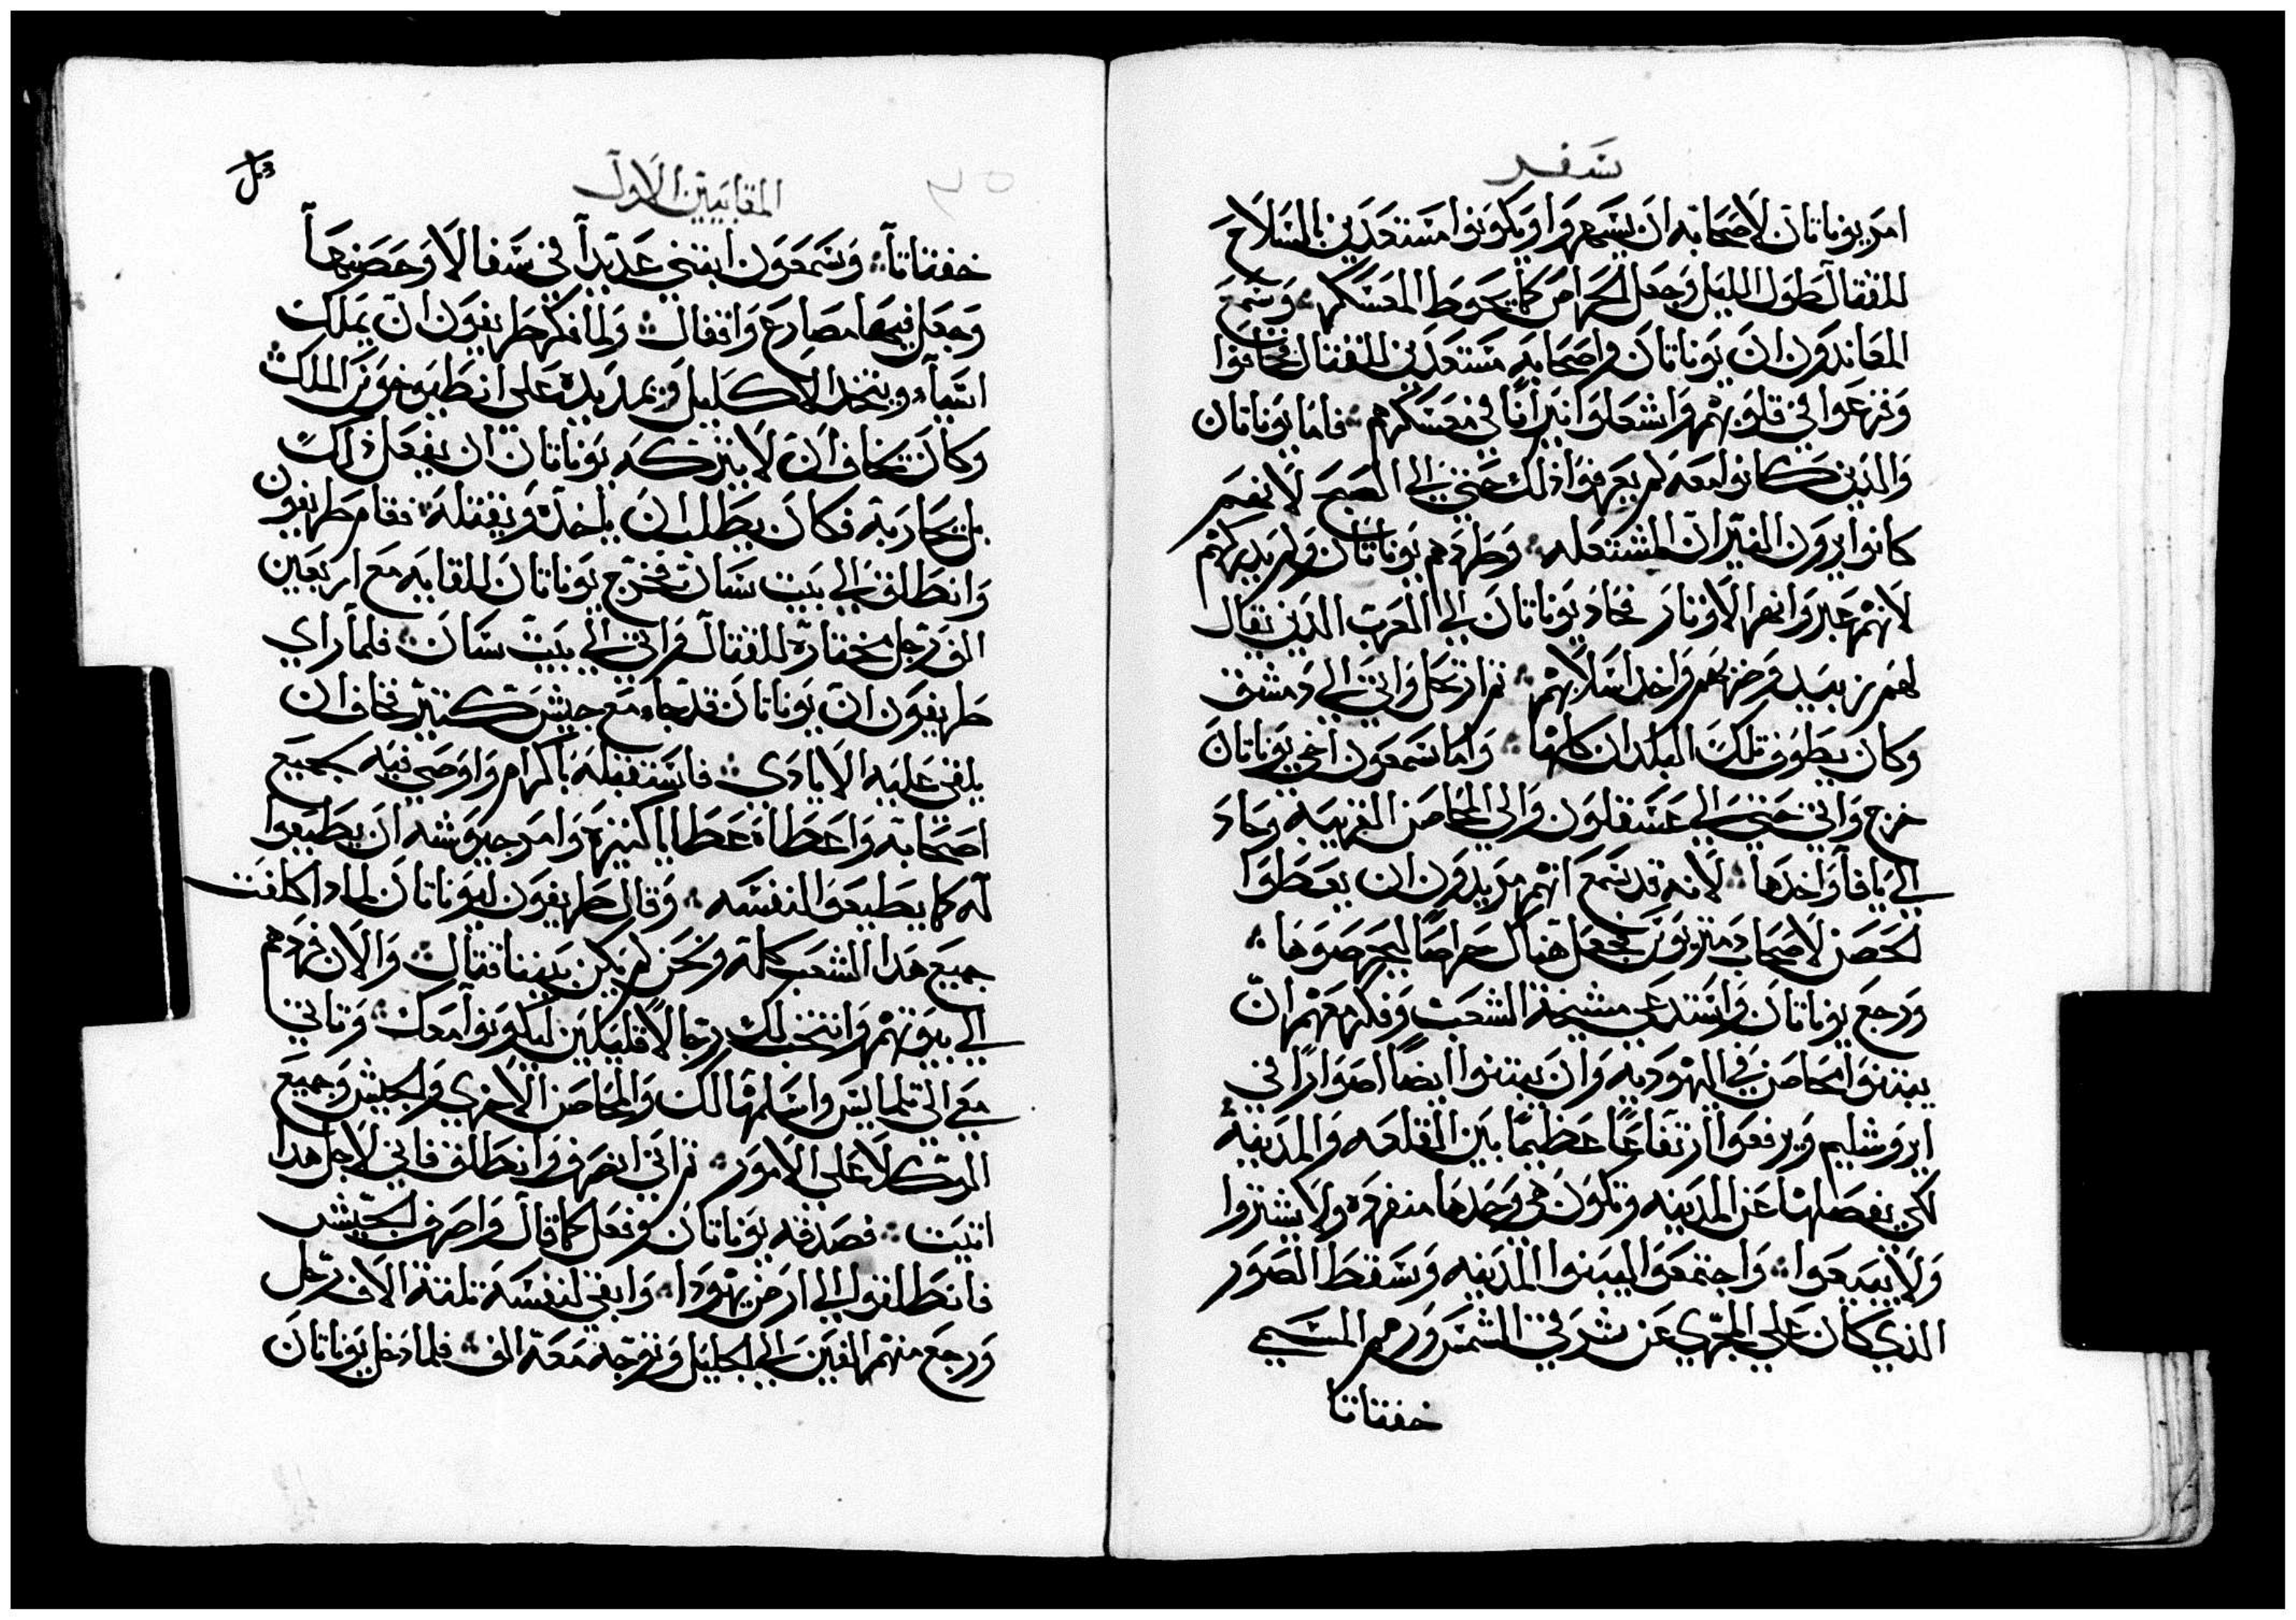 سفر
امر يوناتان لاصحابه ان يسهروا ويكونوا مستعدين بالسلاح
للقتال طول الليل وجعل الحراس كما يحوط المعسكر ⁘ وسمع
المعاندون ان يوناتان واصحابه مستعدين للقتال فخافوا
وفزعوا في قلوبهم واشعلوا نيرانا في معسكرهم ⁘ فاما يوناتان
والذين كانوا معه لم يعرفوا ذلك حتى الى الصبح لانهم
كانوا يرون النيران المشتعله ⁘ وطردهم يوناتان ولم يدركهم
لانهم عبروا نهر الاوتار فحاد يوناتان الى العرب الذين يقال
لهم زبيد وضربهم واخد اسلابهم ⁘ ثم ارتحل واتى الى دمشق
وكان يطوف تلك البلدان كلها ⁘ واما سمعون اخي يوناتان
خرج واتى حتى الى عسقلون والى المحاصن القريبه وحاد
الى يافا واخدها ⁘ لانه قد سمع انهم مريدون ان يعطوا
الحصن لاصحاب دمتريوس فجعل هناك حراصا ليحرصوها ⁘
ورجع يوناتان واستدعى مشيخة الشعب وفكر معهم ان
يبتنوا محاصن في اليهوديه وان يبتنوا ايضا اصوارا في
ايروشليم ويرفعوا ارتفاعا عظيما بين القلعه والمدينه
لكي يفصلها عن المدينه وتكون هي وحدها منفرده ولا يشتروا
ولا يبيعوا ⁘ واجتمعوا ليبنوا المدينه وسقط الصور
الذي كان على الجري عن شرقي الشمس ورمم المسمي
خفتاتا
المقابيين الاول
خفتاتا ⁘ وسمعون ابتنى عديدا في سفالا وحصنها
وجعل فيها مصارع واقفال ⁘ ولما فكر طريفون ان يملك
اسيا ويتخد الاكليل ويمد يده على انطيوخوس الملك ⁘
وكان يخاف ان لا يتركه يوناتان ان يفعل ذلك
بل يحاربه فكان يطلب ان ياخده ويقتله ⁘ فقام طريفون
وانطلق الى بيت سان فخرج يوناتان للقايه مع اربعين
الف رجل مختارة للقتال واتى الى بيت سان ⁘ فلما راي
طريفون ان يوناتان قد جاء مع جيش كثير فخاف ان
يلقي عليه الايادي ⁘ فاستقبله باكرام واوصى فيه جميع
اصحابه واعطاه عطايا كثيرة وامر جيوشه ان يطيعوا
له كما يطيعوا لنفسه ⁘ وقال طريفون ليوناتان لماذا كلفت
جميع هدا الشعب كله ونحن لم يكن بيننا قتال ⁘ والان فردهم
الى بيوتهم وانتخب لك رجالا قليلين ليكونوا معك ⁘ وتاتي
معي الى تلمايس واسلمها لك والمحاصن الاخرى والجيش وجميع
الموكلا على الامور ⁘ ثم اني انصرف وانطلق فاني لاجل هدا
اتيت ⁘ فصدقه يوناتان وفعل كما قال واصرف الجيش
فانطلقوا الى ارض يهودا ⁘ وابقى لنفسه ثلثة الاف رجل
ورجع منهم الفين الى الجليل وتوجه معه الف ⁘ فلما دخل يوناتان